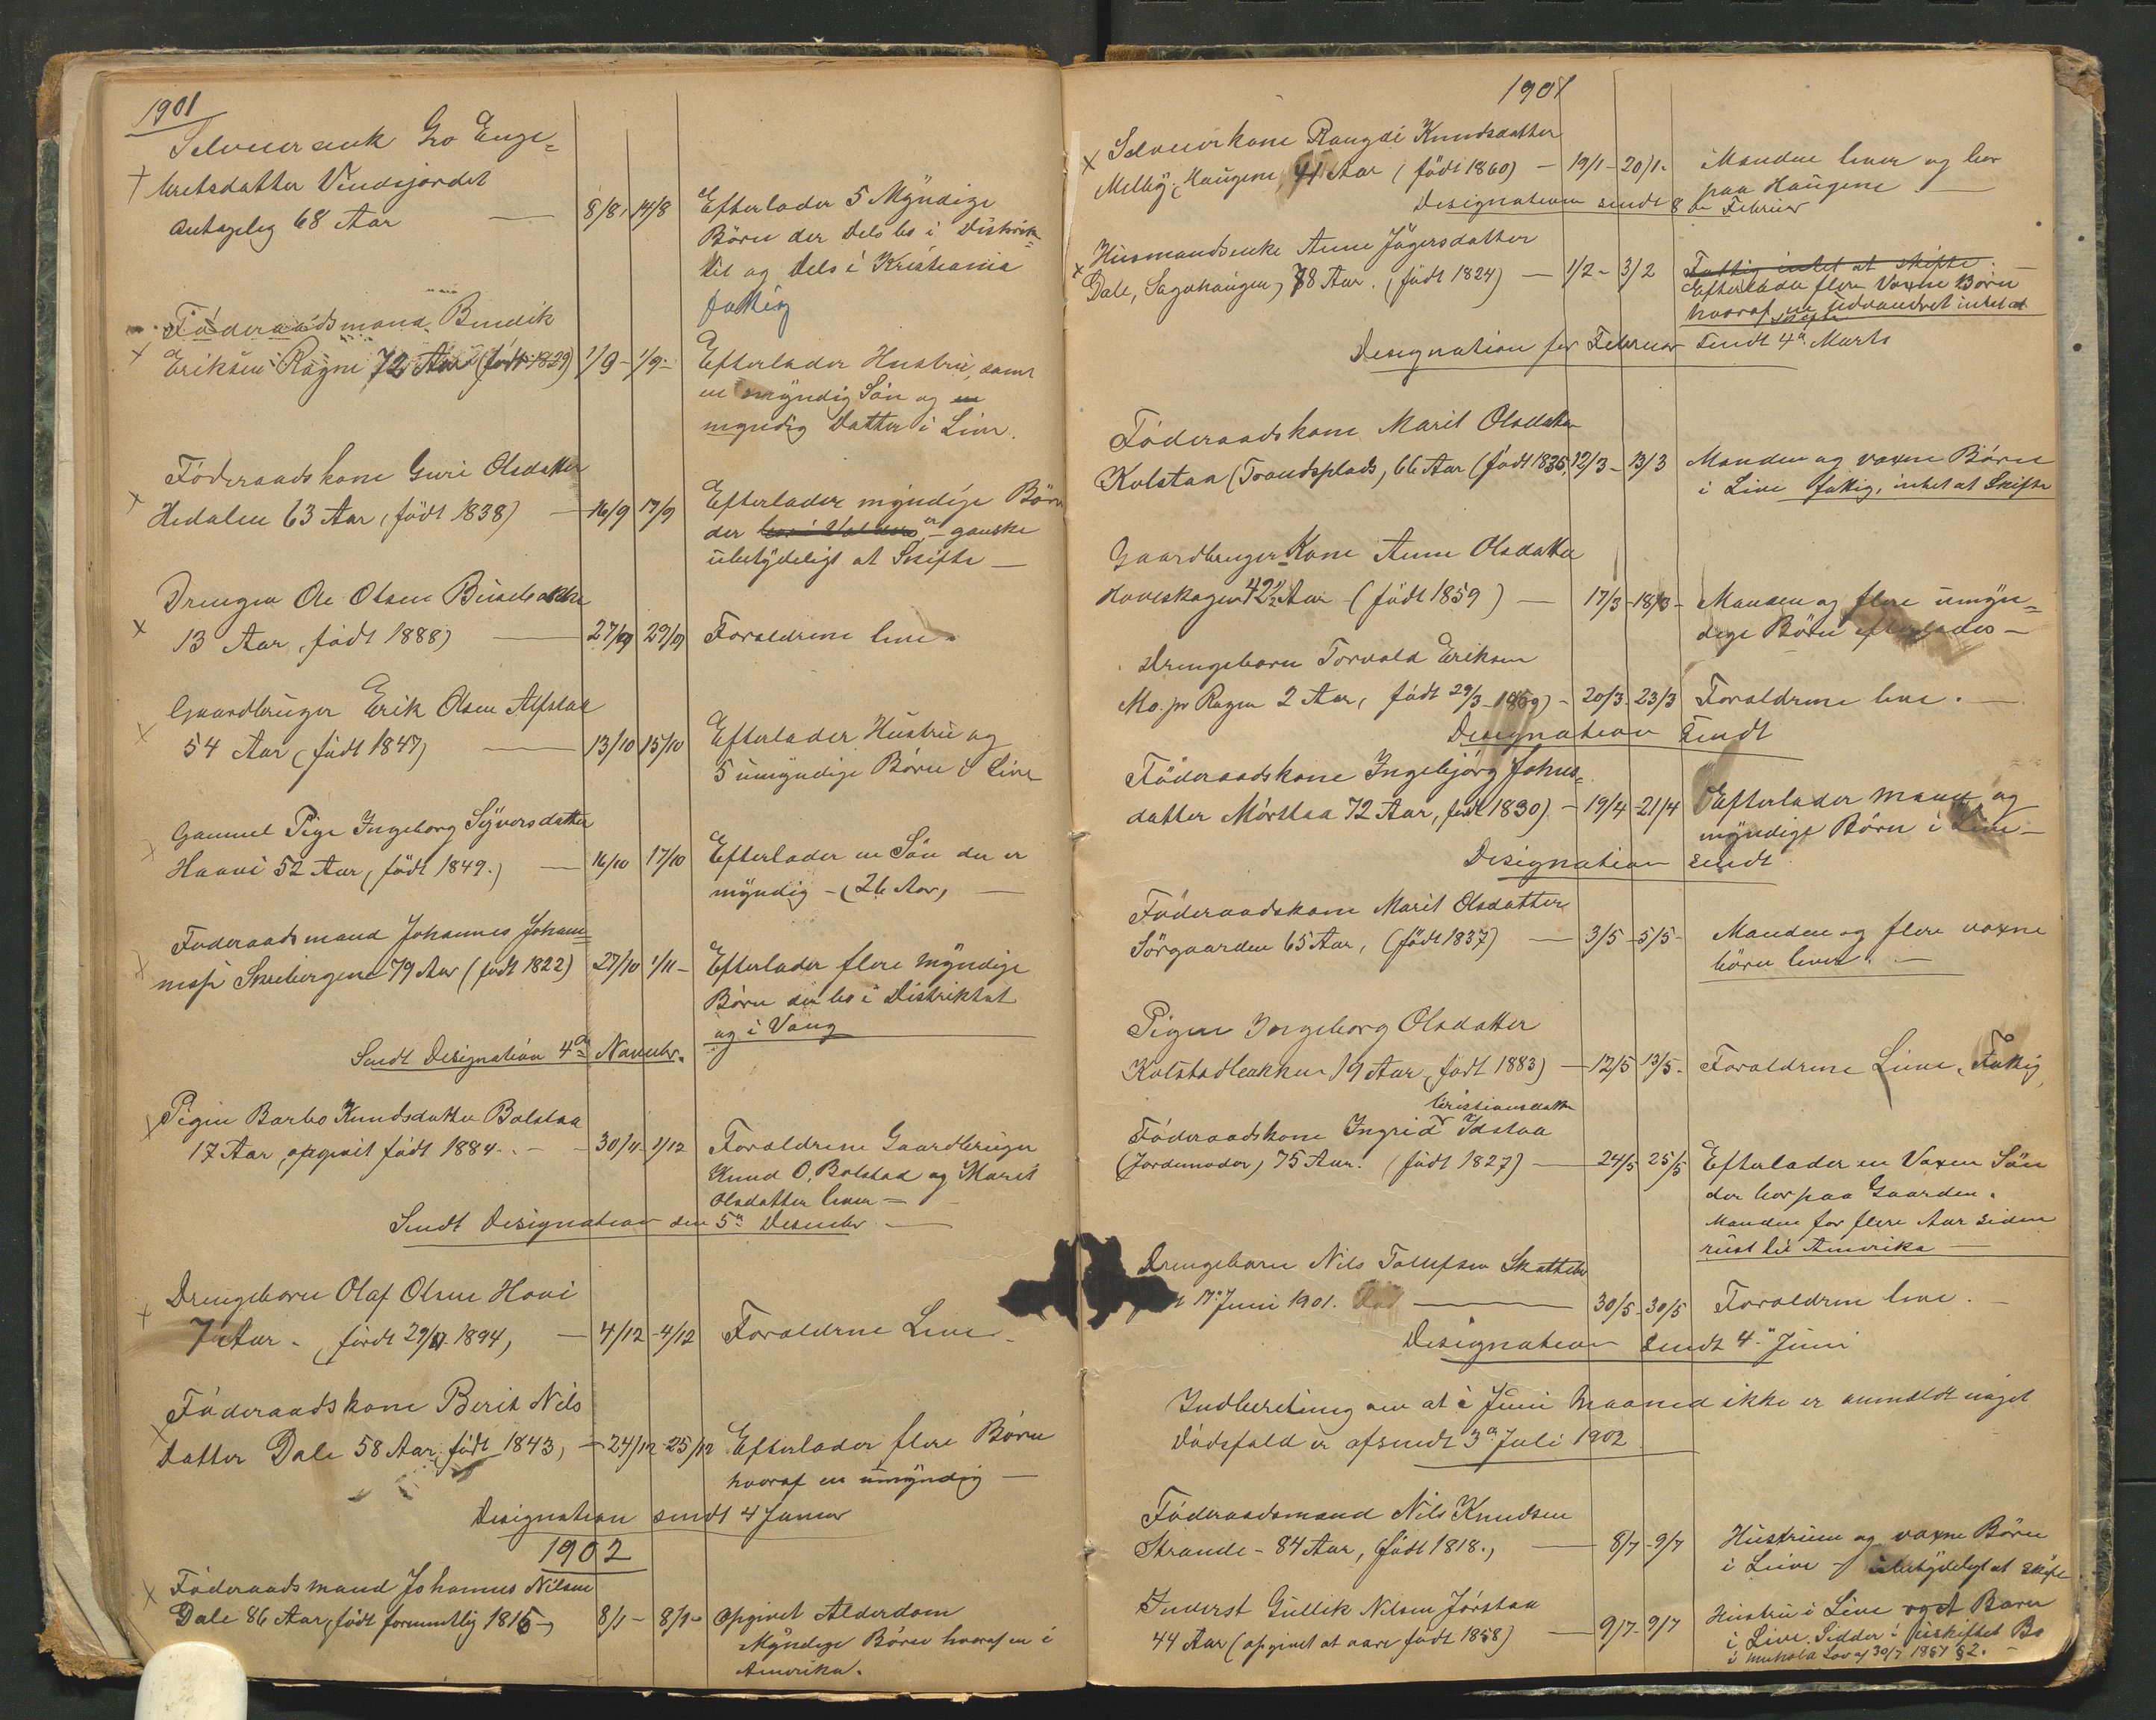 1901
Selveierenk Gro Enge=
+ bretsdatter Vindsjordet
antagelig 68 Aar — 8/8, 14/8 Efterlader 5 Myndige
Börn der Dels bo i Distrik=
tet og Dels i Kristiania
fattig
Föderaadsmand Bendik
x Eriksen Rogne 72 Aar (født 1829) 1/9 - 1/9 - Efterlader Hustru, samt
en myndig Sön og en
myndig Datter i Live.
Föderaadskone Guri Olsdatter
x Hedalen 63 Aar, (födt 1838) — 16/9 17/9 Efterlader myndige Börn
der er - ganske
ubetydeligt at Skifte —
Drengen Ole Olsen
x 13 Aar, födt 1888) — 27/9 29/9 Forældrene leve.
Gaardbruger Erik Olsen Alfstad
x 54 Aar (födt 1847) — 13/10 15/10 Efterlader Hustru og
5 umyndige Börn i Live
Gammel Pige Ingeborg Syversdatter
x Haavi 52 Aar, födt 1849.) — 16/10 17/10 Efterlader en Sön der er
myndig - (26 Aar) —
Föderaadsmand Johannes Johan=
x nesse Skrebergene 79 Aar (födt 1822) 27/10 1/11 - Efterlader flere Myndige
Börn der bo i Distriktet
og i Vang
Sendt Designation 4de Novembr.
Pigen Barbo Knudsdatter Bolstaa
x 17 Aar opgivet födt 1884. - 30/11 - 1/12 Forældrene Gaardbruger
Knud O. Bolstad og Marit
Olsdatter lever —
Sendt Designation den 5te Desember —
Drengebarn Olaf Olsen Hovi
x 7 Aar - (födt 29/ 1894) — 4/12 - 4/12 Forældrne Leve -
Föderaadskone Berit Nils
x Datter Dale 58 Aar, födt 1843, — 24/12 - 25/12 Efterlader flere Börn
hvoraf en umyndig —
Designation sendt 4 Januar
1902
Föderaadsmand Johannes Nilsen
x Dale 86 Aar, födt formentlig 1815 -, 8/1 - 8/1 - Opgivet Alderdom
Myndige Börn hvoraf en i
Amerika.
1901
Selveierkone Rangdi Knudsdatter
x Melby, Haugene, 41 Aar (födt 1860) - 19/1 - 20/1. Manden lever og bor
paa Haugene —
Designation sendt 8de Februar
Husmandsenke Anne Jögersdatter
x Dale, Sagahaugen, 78 Aar. (födt 1824) - 1/2 - 3/2 Fattig intet at skifte.
Efterlader flere Voxne Börn
hvoraf en udvandret intet at
skifte
Designation for Februar Sendt 4de Marts
Föderaadskone Marit Olsdatter
Kolstaa (Trondsplads, 66 Aar (födt 1835, 12/3 - 13/3 Manden og voxne Börn
i Live fattig, intet at Skifte
Gaardbruger Kone Anne Olsdatter
Hoveskogen 42½ Aar - (födt 1859) — 17/3 - 18/3 - Manden og flere umyn=
dige Börn efterlades -
Drengebarn Torvald Eriksen
Mo. pr Rogne 2 Aar, födt 29/3 - 1899) - 20/3 - 23/3 Forældrene leve. —
Designation Sendt
Föderaadskone Ingebjörg Johns=
datter Mörstaa 72 Aar, födt 1830) - 19/4 - 21/4 Efterlader Mand og
myndige Börn i Live -
Designation sendt
Föderaadskone Marit Olsdatter
Sörgaarden 65 Aar, (födt 1837) — 3/5 - 5/5 - Manden og flere voxne
börn lever. —
Pigen Ingeborg Olsdatter
Kolstadbakken 19 Aar, födt 1883) - 12/5 - 13/5 - Forældrene Leve, Fattig,
Cristiansdatter
Föderaadskone Ingrid Idstaa
(Jordemoder) 75 Aar. (födt 1827) — 24/5 25/5 Efterlader en Voxen Sön
der bor paa Gaarden.
Manden for flere Aar siden
reist til Amerika —
Drengebarn Nils Tollefsen Skattebo
17de Juni 1901. — 30/5 - 30/5 Forældrene leve. -
Designation Sendt 4de Juni
Indberetning om at i Juni Maaned ikke er anmeldt noget
Dödsfald er afsendt 3de Juli 1902
Föderaadsmand Nils Knudsen
Strande - 84 Aar, födt 1818., — 8/7 - 9/7 Hustruen og voxne Börn
i Leive - ubetydeligt at skifte
Inderst Gullik Nilsen Jörstaa
44 Aar (opgivet at være födt 1858) — 9/7 - 9/7 Hustru i Live og et Barn
i Live. Sidder i uskiftet Bo
i Lov af 30/7 1851 § 2. -